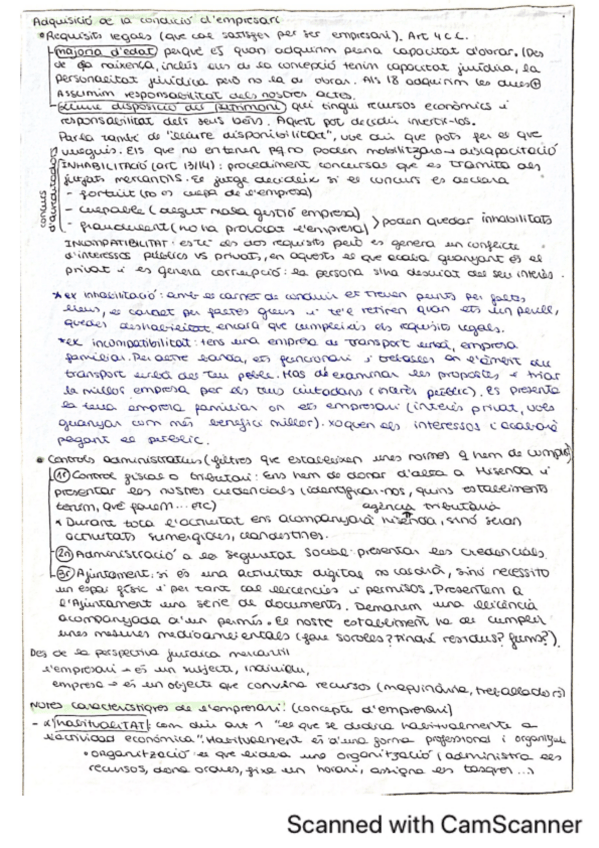 Adquisició de la condició d'empresari
• Requisits legals (que cal satisfer per ser empresari). Art 4 C.C.
majoria d'edat perquè és quan adquirim plena capacitat d'obrar. (Des
de la naixença, inclús des de la concepció tenim capacitat jurídica, la
personalitat jurídica però no la d'obrar. Als 18 adquirim les dues
Assumim responsabilitat dels nostres actes.
lliure disposició del patrimoni que tingui recursos econòmics i
responsabilitat dels seus béns. Aquest pot decidir invertir-los.
Parla també de "lliure disponibilitat", vol dir que pots fer el que
vulguis. Els que no entenen pq no poden mobilitzar-lo → discapacitació
INHABILITACIÓ (art 13/14): procediment concursos que es tramita als
jutjats mercantils. El jutge decideix si el concurs es declara
concurs d'acreedors
- fortuït (no es culpa de l'empresa)
- culpable (degut mala gestió empresa)
- fraudulent (no ha provocat l'empresa) > poden quedar inhabilitats
INCOMPATIBILITAT: esté els dos requisits però es genera un conflicte
d'interessos públics vs privats, en aquests el que acaba guanyant és el
privat i es genera corrupció: la persona s'ha desviat del seu interès.
* ex inhabilitació: amb el carnet de conduir et treuen punts per faltes
lleus, el carnet per faltes greus i te'l retiren quan ets un perill,
quedes deshabilitat encara que compleixis els requisits legals.
* ex incompatibilitat: tens una empresa de transport urbà, empresa
familiar. Per altre banda, ets funcionari i treballes en l'àmbit del
transport urbà del teu poble. Has d'examinar les propostes i triar
la millor empresa per els teus ciutadans (interès públic). Es presenta
la teva empresa familiar on ets empresari (interès privat, vols
guanyar com més benefici millor). Xoquen els interessos i acabarà
pagant el públic.
• Controls administratius (filtres que estableixen unes normes q hem de complir)
1r Control fiscal o tributari: Ens hem de donar d'alta a Hisenda i
presentar les nostres credencials (identificar-nos, quins establiments
tenim, què farem... etc)
agència tributària
* Durant tota l'activitat ens acompanyarà hisenda, sinó seran
activitats submergides, clandestines.
2n Administració a la seguretat social: presentar les credencials.
3r Ajuntament: si és una activitat digital no caldrà, sinó necessito
un espai físic i per tant cal llicències i permisos. Presentem a
l'Ajuntament una sèrie de documents. Demanem una llicència
acompanyada d'un permís. El nostre establiment ha de complir
unes mesures mediambientals (fare sorolls? tinguí residus? fums?).
Des de la perspectiva jurídica mercantil
l'empresari → és un subjecte, individu,
empresa → és un objecte que combina recursos (maquinària, treballadors)
Notes característiques de l'empresari: (concepte d'empresari)
- d'HABITUALITAT: com diu art 1 "el que se dedica habitualmente a
l'actividad econòmica". Habitualment és d'una forma professional i organitzat
• organització: el que lidera una organització (administra els
recursos, dona ordres, fixa un horari, assigna les tasques...)
Scanned with CamScanner